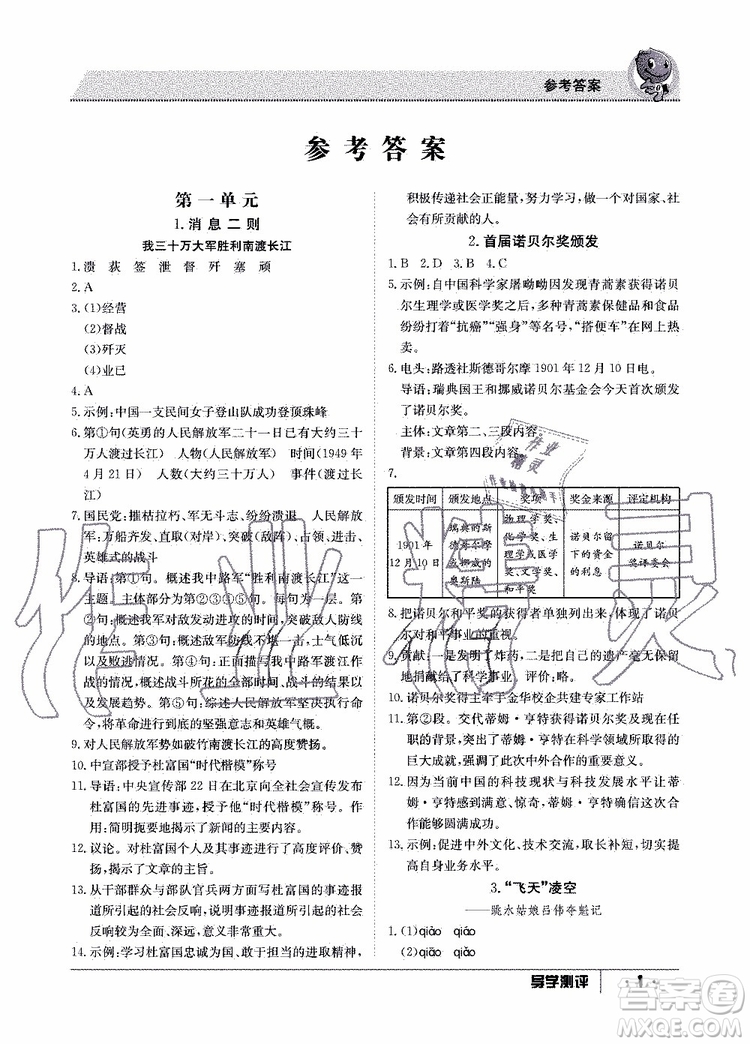 参考答案
参考答案
第一单元
1.消息二则
我三十万大军胜利南渡长江
1.溃 荻 签 泄 督 歼 塞 顽
2.A
3.(1)经营
(2)督战
(3)歼灭
(4)业已
4.A
5.示例:中国一支民间女子登山队成功登顶珠峰
6.第①句(英勇的人民解放军二十一日已有大约三十
万人渡过长江) 人物(人民解放军) 时间(1949年
4月21日) 人数(大约三十万人) 事件(渡过长
江)
7.国民党:摧枯拉朽、军无斗志、纷纷溃退 人民解放
军:万船齐发、直取(对岸)、突破(敌阵)、占领、进击、
英雄式的战斗
8.导语:第①句。概述我中路军“胜利南渡长江”这一
主题。主体部分为第②③④⑤句。每句为一层。第
②句:概述我军对敌发动进攻的时间、突破敌人防线
的地点。第③句:补叙渡江作战情况。第④句:
面描写敌军对我军进攻的抵抗情况——士气低沉
以及败退的情况。第⑤句:正面描写我中路军渡江作
战、占领的情况。概述战斗所花的时间、战斗成果以
及发展趋势。第⑥句:综述人民解放军坚决执行命
令,将革命进行到底的坚强意志和英雄气概。
9.对人民解放军势如破竹南渡长江的高度赞扬。
10.中宣部授予杜富国“时代楷模”称号
11.导语:中央宣传部22日在北京向全社会宣传发布
杜富国的先进事迹,授予他“时代楷模”称号。作用:
简明扼要地揭示了新闻的内容。
12.议论。对杜富国个人及其事迹进行高度评价、赞
扬,揭示了文章的主旨。
13.从干部群众与部队官兵两方面写杜富国的事迹报
道所引起的社会反响,说明了杜富国的事迹报道所
引起的社会反响全面、深远,富有重大意义。
14.示例:学习杜富国忠诚为国、敢于担当的进取精神,
积极传递社会正能量,努力学习,做一个对国家、社
会有所贡献的人。
2.首届诺贝尔奖颁发
1.B 2.D 3.B 4.C
5.示例:自中国科学家屠呦呦因发现青蒿素获得诺贝
尔生理学或医学奖之后,多种青蒿素保健品和食品
纷纷打着“抗癌”“强身”等名号,“搭便车”在网上热
卖。
6.电头:路透社斯德哥尔摩1901年12月10日电。
导语:瑞典国王和挪威诺贝尔基金会今天首次颁发
了诺贝尔奖。
主体:文章第二、三段内容。
背景:文章第四段内容。
7.
颁发时间 颁发地点 奖项 奖金来源 评定机构
1901年12月10日 瑞典的斯德哥尔摩或挪威的奥斯陆 物理学奖、化学奖、生理学或医学奖、文学奖、和平奖 诺贝尔留下的资金的利息 诺贝尔奖评委会
8.把诺贝尔和平奖的获得者单独列出来,体现了诺贝
尔对和平事业的重视。
9.贡献:1.发明了炸药,2.把自己的遗产毫无保留地
捐献给了科学事业。评价:略。
10.诺贝尔奖得主牵手金华校企共建专家工作站
11.第②段。交代蒂姆·亨特获得诺贝尔奖及在任职
的背景,突出了蒂姆·亨特在科学领域所做出的
巨大成就,更突出了此次中外合作的重要意义。
12.因为当前中国的科技现状与科技发展水平让蒂
姆·亨特感到满意、惊奇,蒂姆·亨特希望双方合
作能够圆满成功。
13.示例:促进中外文化、技术交流,取长补短,切实提高
自身业务水平。
3.“飞天”凌空
——跳水姑娘吕伟夺魁记
1.(1)qiào qiáo
(2)qiǎo qiāo
导学测评
1
作业精灵
作业精灵
答案圈
MXQE.COM